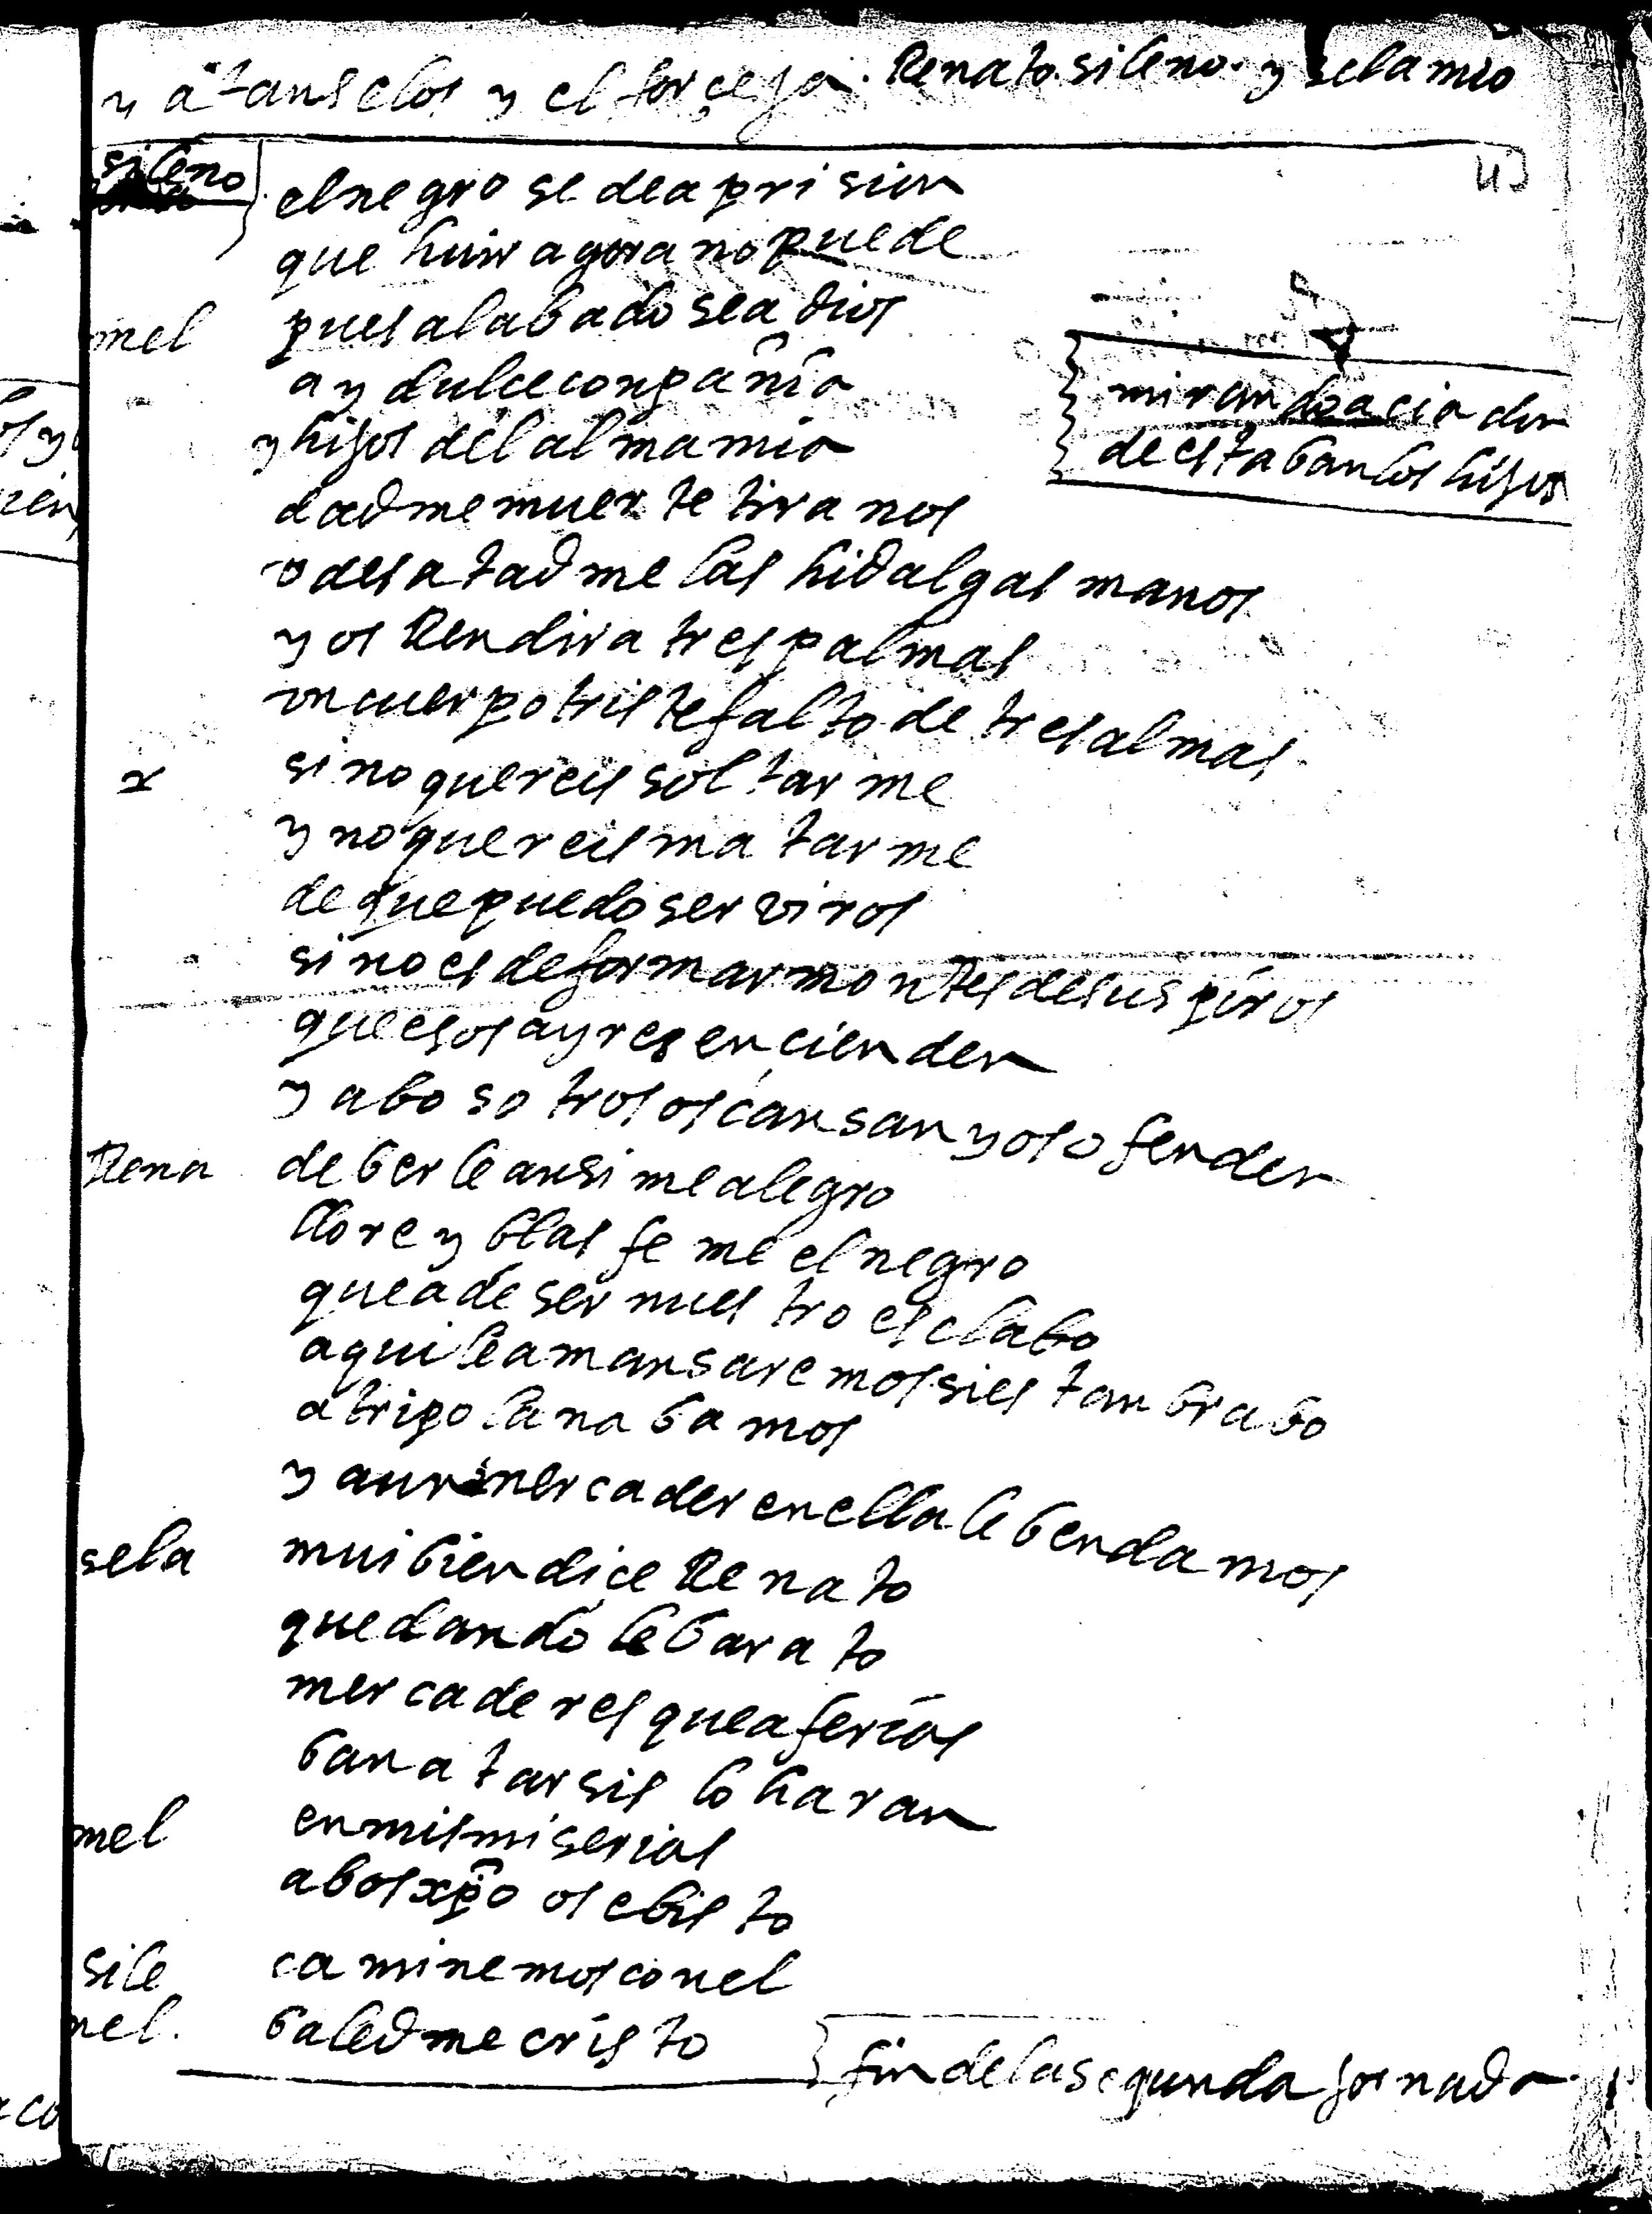 y atanselos y el forçeja. Renato. sileno. y selamio
43
sileno el negro se dea prision
que huir agora no puede
mel pues alabado sea dios
ay dulce conpañia
mirando acia don
y hijos del alma mia
de estaban los hijos
dadme muerte tiranos
o desatadme las hidalgas manos
y os Rendira tres palmas
un cuerpo triste falto de tres almas
si no quereis soltarme
y no quereis matarme
de que puedo serviros
si no es de formar montes de suspiros
que esos ayres ençienden
y a bosotros os cansan y os ofenden
Rena de berle ansi me alegro
llore y blasfeme el negro
que a de ser nuestro esclabo
aqui le amansaremos si es tan brabo
a tripolana bamos
y a un mercader en ella le bendamos
sela mui bien dice Renato
que dandole barato
mercaderes que a ferias
ban a tarsis lo haran
mel en mis miserias
a bos xpo os e bisto
sile caminemos con el
mel. baledme cristo
fin de la segunda jornada